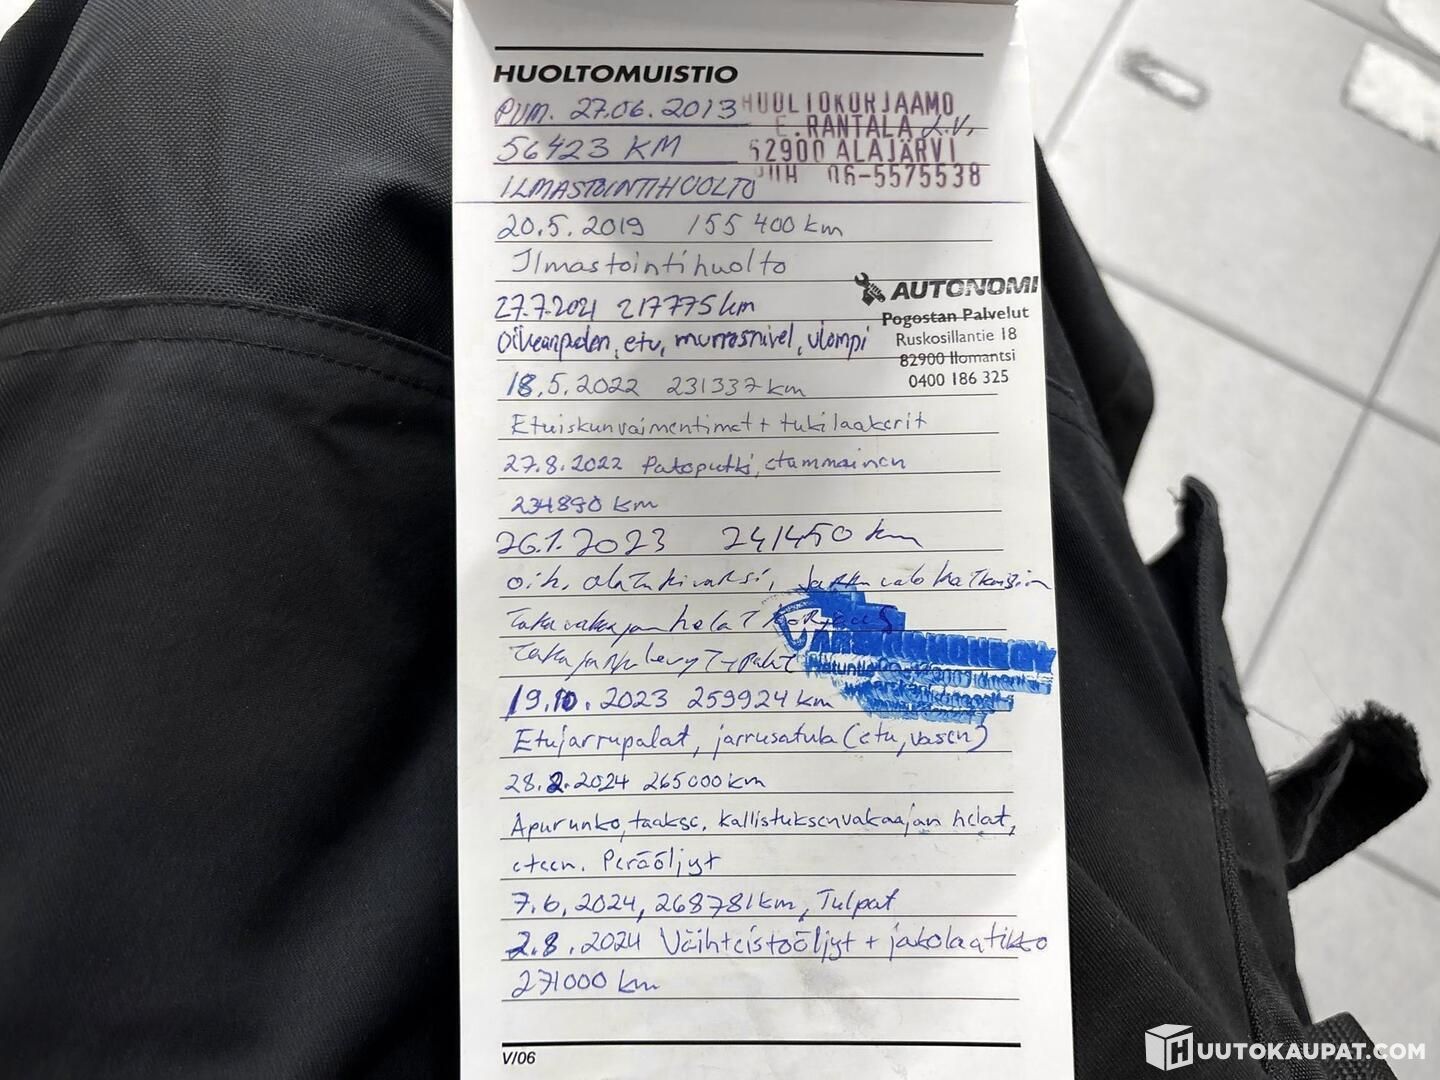 HUOLTOMUISTIO
PVM. 27.06.2013
HUOLTOKORJAAMO
E. RANTALA
56423 KM
62900 ALAJÄRVI
PUH 06-5575538
ILMASTOINTIHUOLTO
20.5.2019 155 400 km
Ilmastointihuolto
AUTONOMI
Pogostan Palvelut
Ruskosillantie 18
82900 Ilomantsi
0400 186 325
27.7.2021 217775 km
Oikeanpuolen, etu, murrosnivel, ulompi
18.5.2022 231337 km
Etuiskunvaimentimet + tukilaakerit
27.8.2022 Pakoputki, etummainen
234890 km
26.1.2023 241450 km
oik. alatukivarsi, Jarruvalo katkaisin
Takavakaajan helat korjaus
Taka jarru levyt + palat
19.10.2023 259924 km
Etujarrupalat, jarrusatula (etu, vasen)
28.2.2024 265000 km
Apurunko, taakse. Kallistuksenvakaajan helat,
eteen. Peräöljyt
7.6.2024, 268781 km, Tulpat
2.8.2024 Vaihteistoöljyt + jakolaatikko
271000 km
V/06
HUUTOKAUPAT.COM